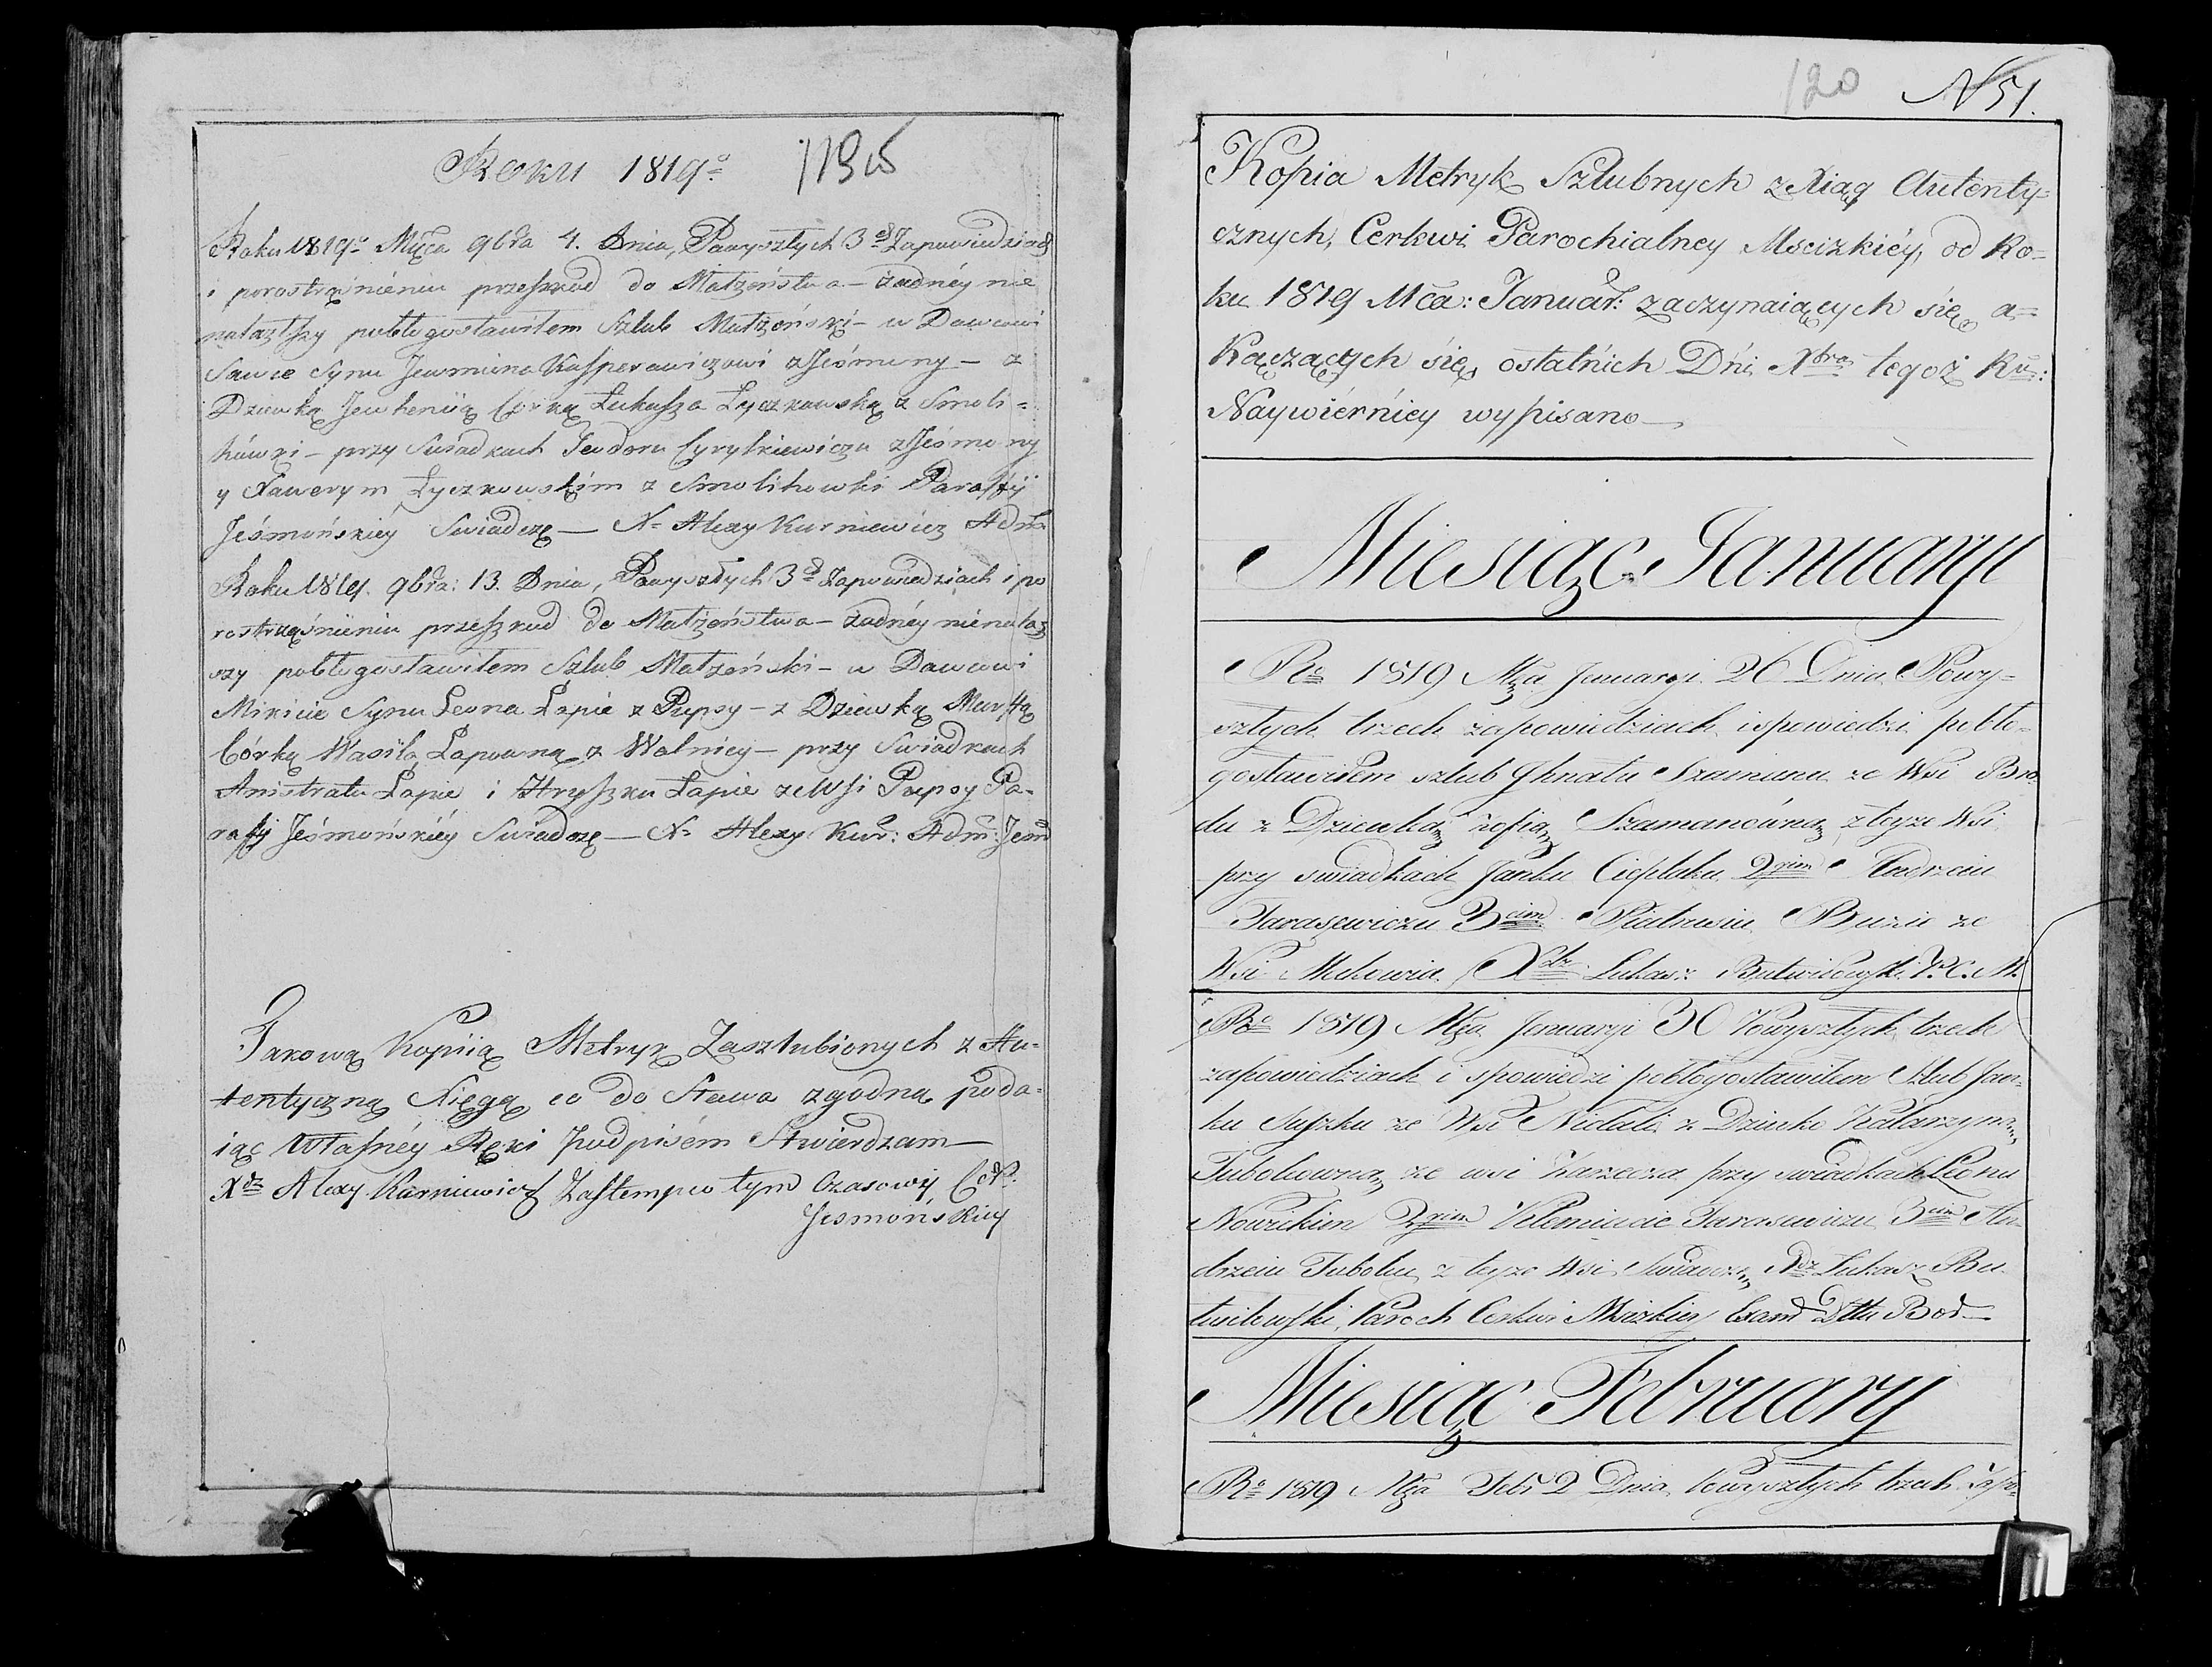 Roku 1819o
119 v
Roku 1819o Mṡca 9bra 4. Dnia, Powyszłych 3ch Zapowiedziach
i porostrząśnieniu przeszkod do Małżeństwa – żadnéy nie
nalazłszy pobłogosławiłem Szlub Małżeński – w Dowcowi
Sawie Synu Jewmiena Kasperowiczowi z Jeśmony – z
Dziewką Jewhenią Corką Łukasza Łyczkowską z Smoli-
hówki – przy Swiadkach Teodoru Cyrylkiewiczu z Jeśmony
y Xawerym Łyczkowskim z Smolihowki Parafij
Jeśmońskiey Swiadczę — X. Alexy Kurniewicz Adm:
Roku 1819. 9bra: 13. Dnia, Powyszłych 3ch Zapowiedziach i po
rostrząśnieniu przeszkod do Małżeństwa – żadnéy nienalaz
szy pobłogosławiłem Szlub Małżeński – w Dowcowi
Mikicie Synu Leona Łapie z Pupsy – z Dziewką Martą
Córką Wasila Łapowną z Wolnicy – przy Swiadkach
Anistratu Łapie i Hryszku Łapie ze Wsi Pupsy Pa-
rafij Jeśmońskiéy Swiadczę — X. Alexy Kur: Adm: Jesm
Takową Kopiią Metryk Zaszlubionych z Au-
tentyczną Xięgą co do Słowa zgodną poda-
iąc Własnéy Ręki podpisém Stwierdzam —
Xdz Alexy Kurniewicz Zastempca tym Czasowy Cer:
Jesmońskiey
120 N 51.
Kopia Metryk Szlubnych z Xiąg Autenty-
cznych, Cerkwi Parochialney Mscizkiéy, od Ro-
ku 1819 Mca: Januar: zaczynaiących się a-
Kączących się ostatnich Dni Xbra tegoż Ru:
Naywiérniey wypisano —
Miesiąc Januaryi
Ru 1819 Mca Januaryi 26 Dnia Powy-
szłych trzech zapowiedziach i spowiedzi pobło-
gosławiłem szlub Ihnatu Szamanu ze Wsi Bro
du z Dziewką Zofią Szamanówną z teyże Wsi
przy swiadkach Janku Cieplaku 2gim Andrzeiu
Tarasewiczu 3cim Piatrusiu Buzie ze
Wsi Makowia Xdz Łukasz Butwiłowski P. C. M.
Ro 1819 Mca Januaryi 30 Powyszłych trzech
zapowiedziach i spowiedzi pobłogosławiłem Szlub Jan-
ku Suszku ze Wsi Nidali z Dziewko Katarzyną
Tubolowną ze wsi Zarzecza przy swiadkach Leonu
Nowickim 2gim Filemiacie Tarasewiczu 3cim An-
drzeiu Tubolu z teyże Wsi Swiadczę Xdz Łukasz Bu
twiłowski Paroch Cerkwi Mscizkiey Exam Dttu Bor —
Miesiąc February
Ro 1819 Mca Febr 2 Dnia Powyszłych trzech Zapo-